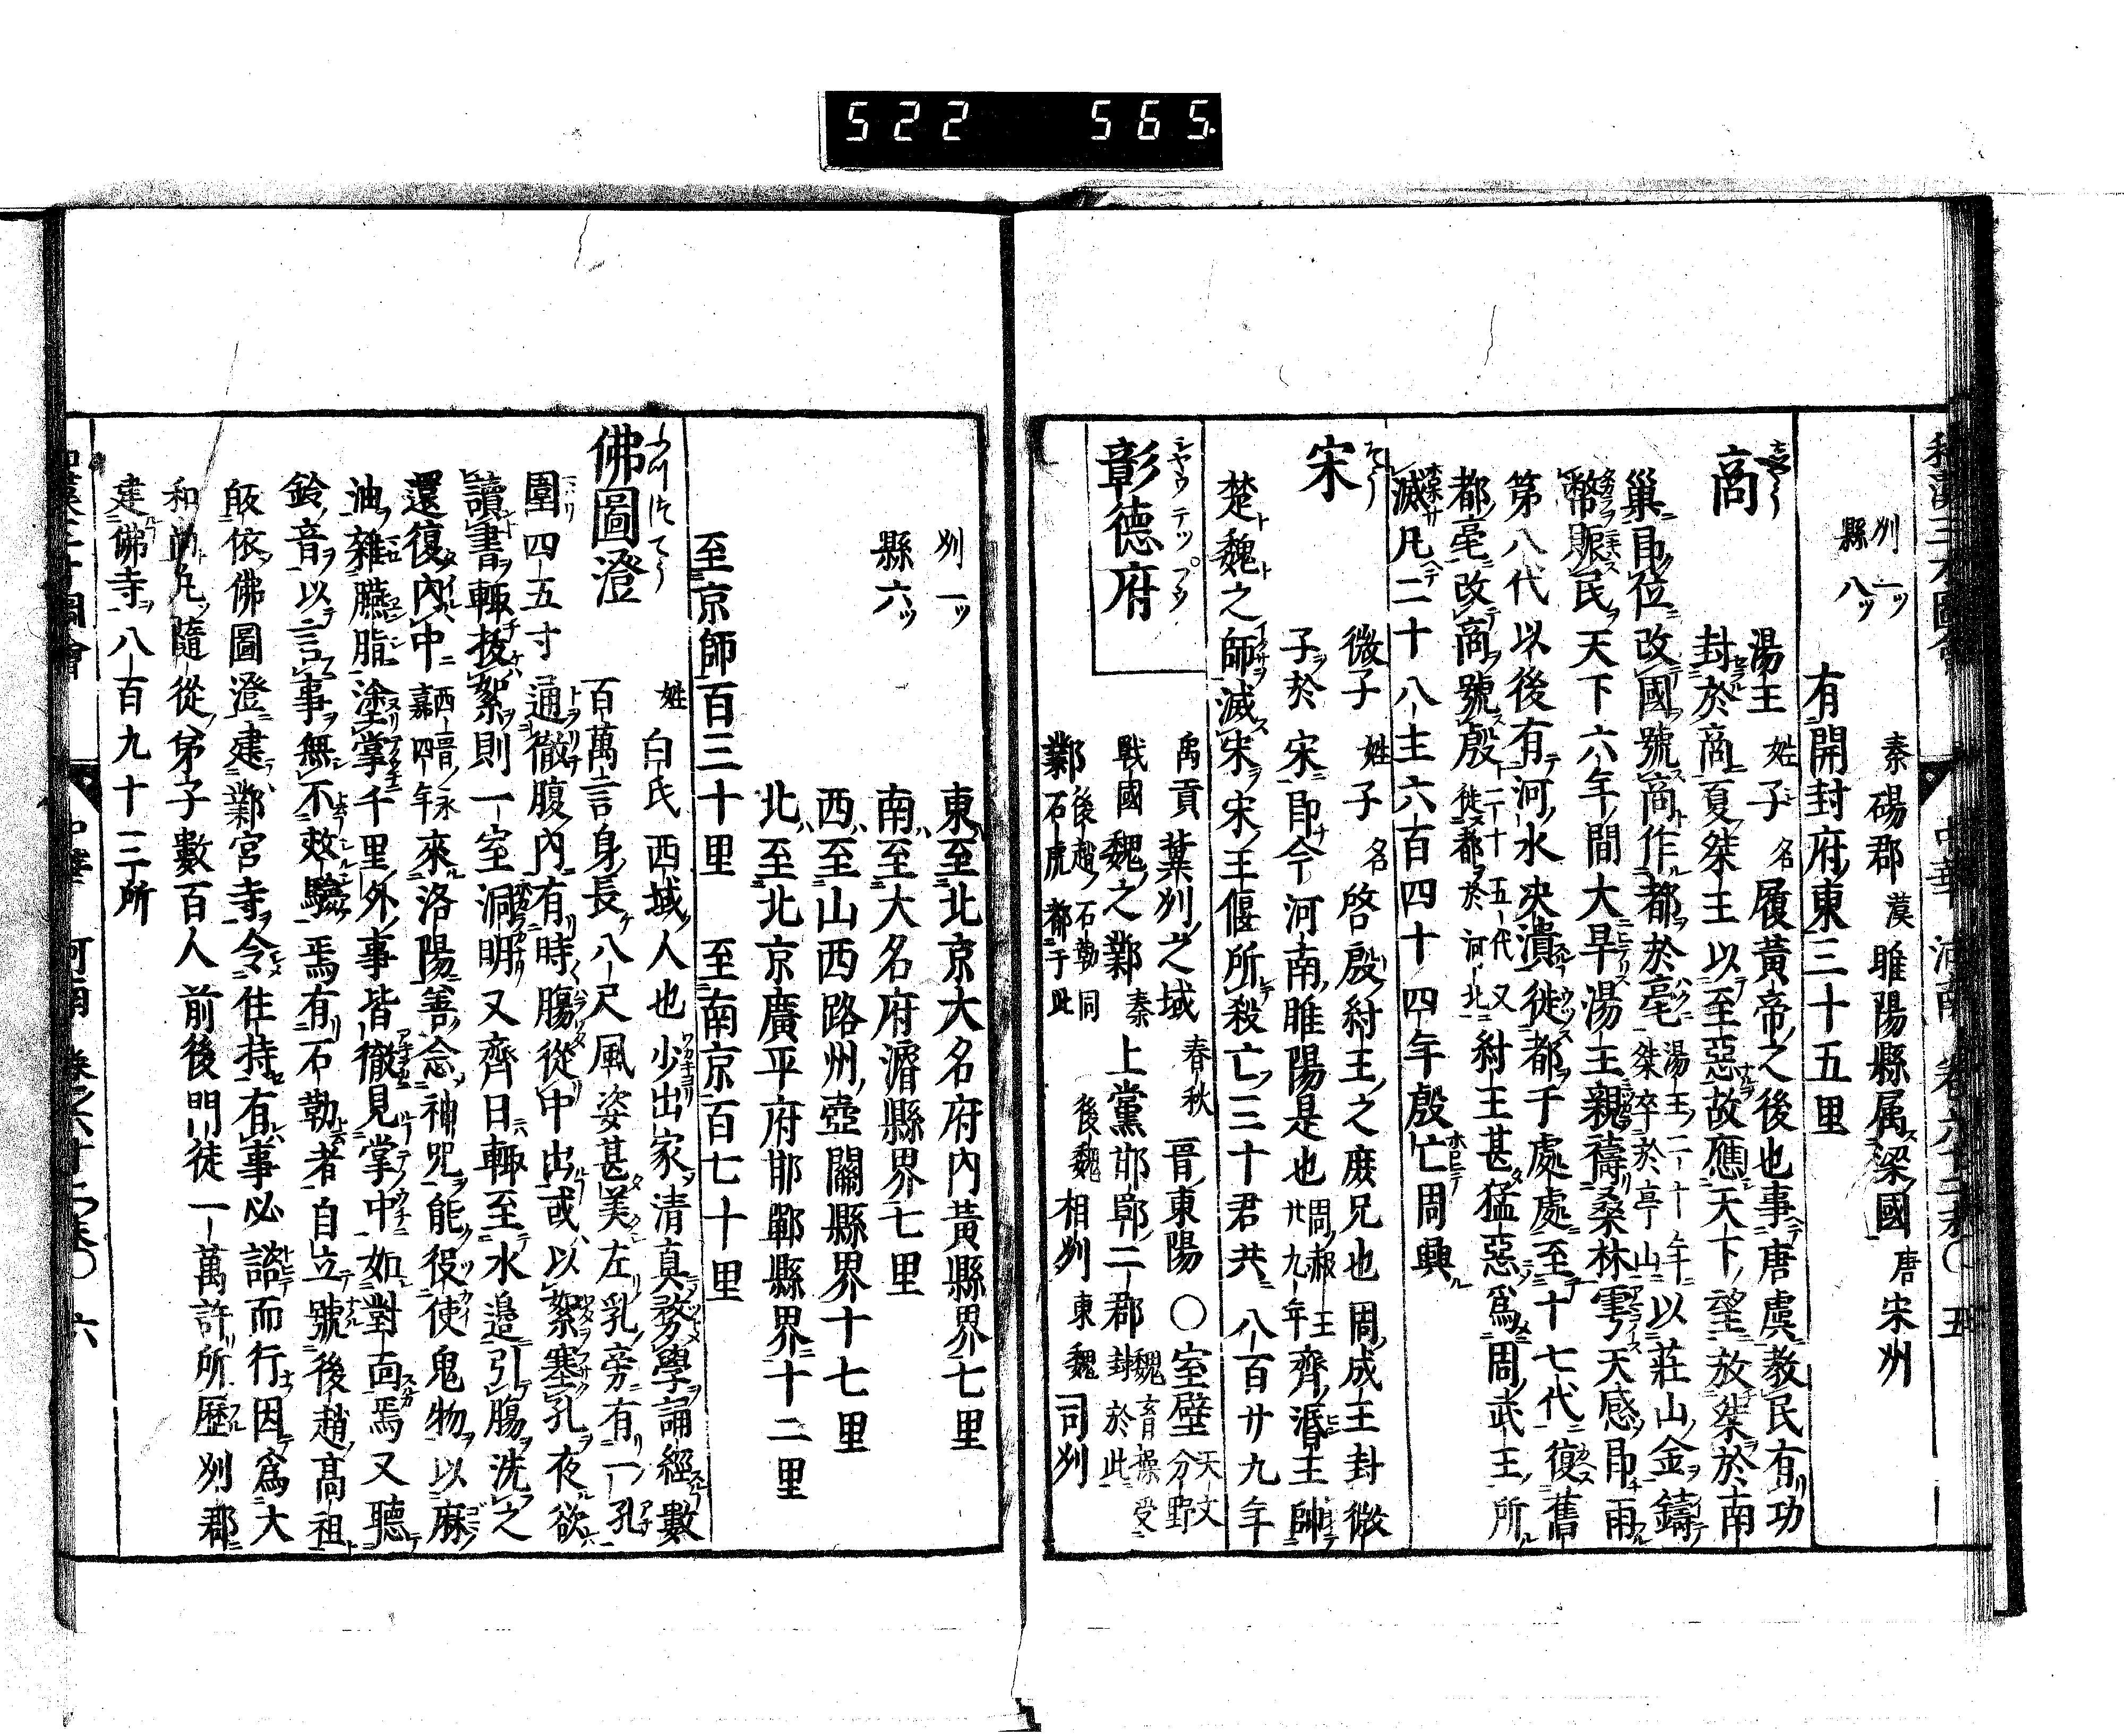 522 565
和漢三才圖會 中華 河南 卷六十二本 ○ 五
州一ッ 秦碭郡 漢睢陽縣属梁國 唐宋州
縣八ッ
有開封府東三十五里
商 湯王 姓子名履黃帝之後也事唐虞教民有功
封於商夏桀王以至惡故應天下望放桀於南
巢即位改國號商作都於亳 湯王二十年桀卒於亭山 以莊山金鑄
幣賑民天下六年間大旱湯王親禱桑林雩天感即雨
第八代以後有河水决潰徙都于處處至十七代復舊
都亳改商號殷 二十五代又徙都於河北 紂王甚猛惡爲周武王所
滅凡二十八主六百四十四年殷亡周興
宋 微子 姓子名啓殷紂王之庶兄也周成王封微
子於宋即今河南睢陽是也 周赧王廿九年 齊湣王帥
楚魏之師滅宋宋王偃所殺亡三十君共八百廿九年
彰德府 シヤウテツプウ
禹貢冀州之域 春秋晋東陽 ○室壁 天文分野
戰國魏之鄴 秦上黨邯鄲二郡 魏曹操受封於此
鄴 後趙石勒同石虎都于此 後魏相州 東魏司州
州一ッ 東至北京大名府內黃縣界七里
縣六ッ 南至大名府濬縣界七里
西至山西路州壺關縣界十七里
北至北京廣平府邯鄲縣界十二里
至京師百三十里 至南京百七十里
佛圖澄 姓白氏西域人也少出家清真務學誦經數
百萬言身長八尺風姿甚美左乳旁有一孔
圍四五寸通徹腹內有時腸從中出或以絮塞孔夜欲
讀書輙拔絮則一室洞明又齊日輙至水邉引腸洗之
還復內中 西晋永嘉四年 來洛陽善念神咒能役使鬼物以麻
油雜臙脂塗掌千里外事皆徹見掌中如對面焉又聽
鈴音以言事無不效驗焉有石勒者自立號後趙高祖
皈依佛圖澄建鄴宮寺令住持有事必諮而行因爲大
和尚凡隨從弟子數百人前後門徒一萬許所歷州郡
建佛寺八百九十三所
和漢三才圖會 中華 河南 卷之六十二本 ○ 六